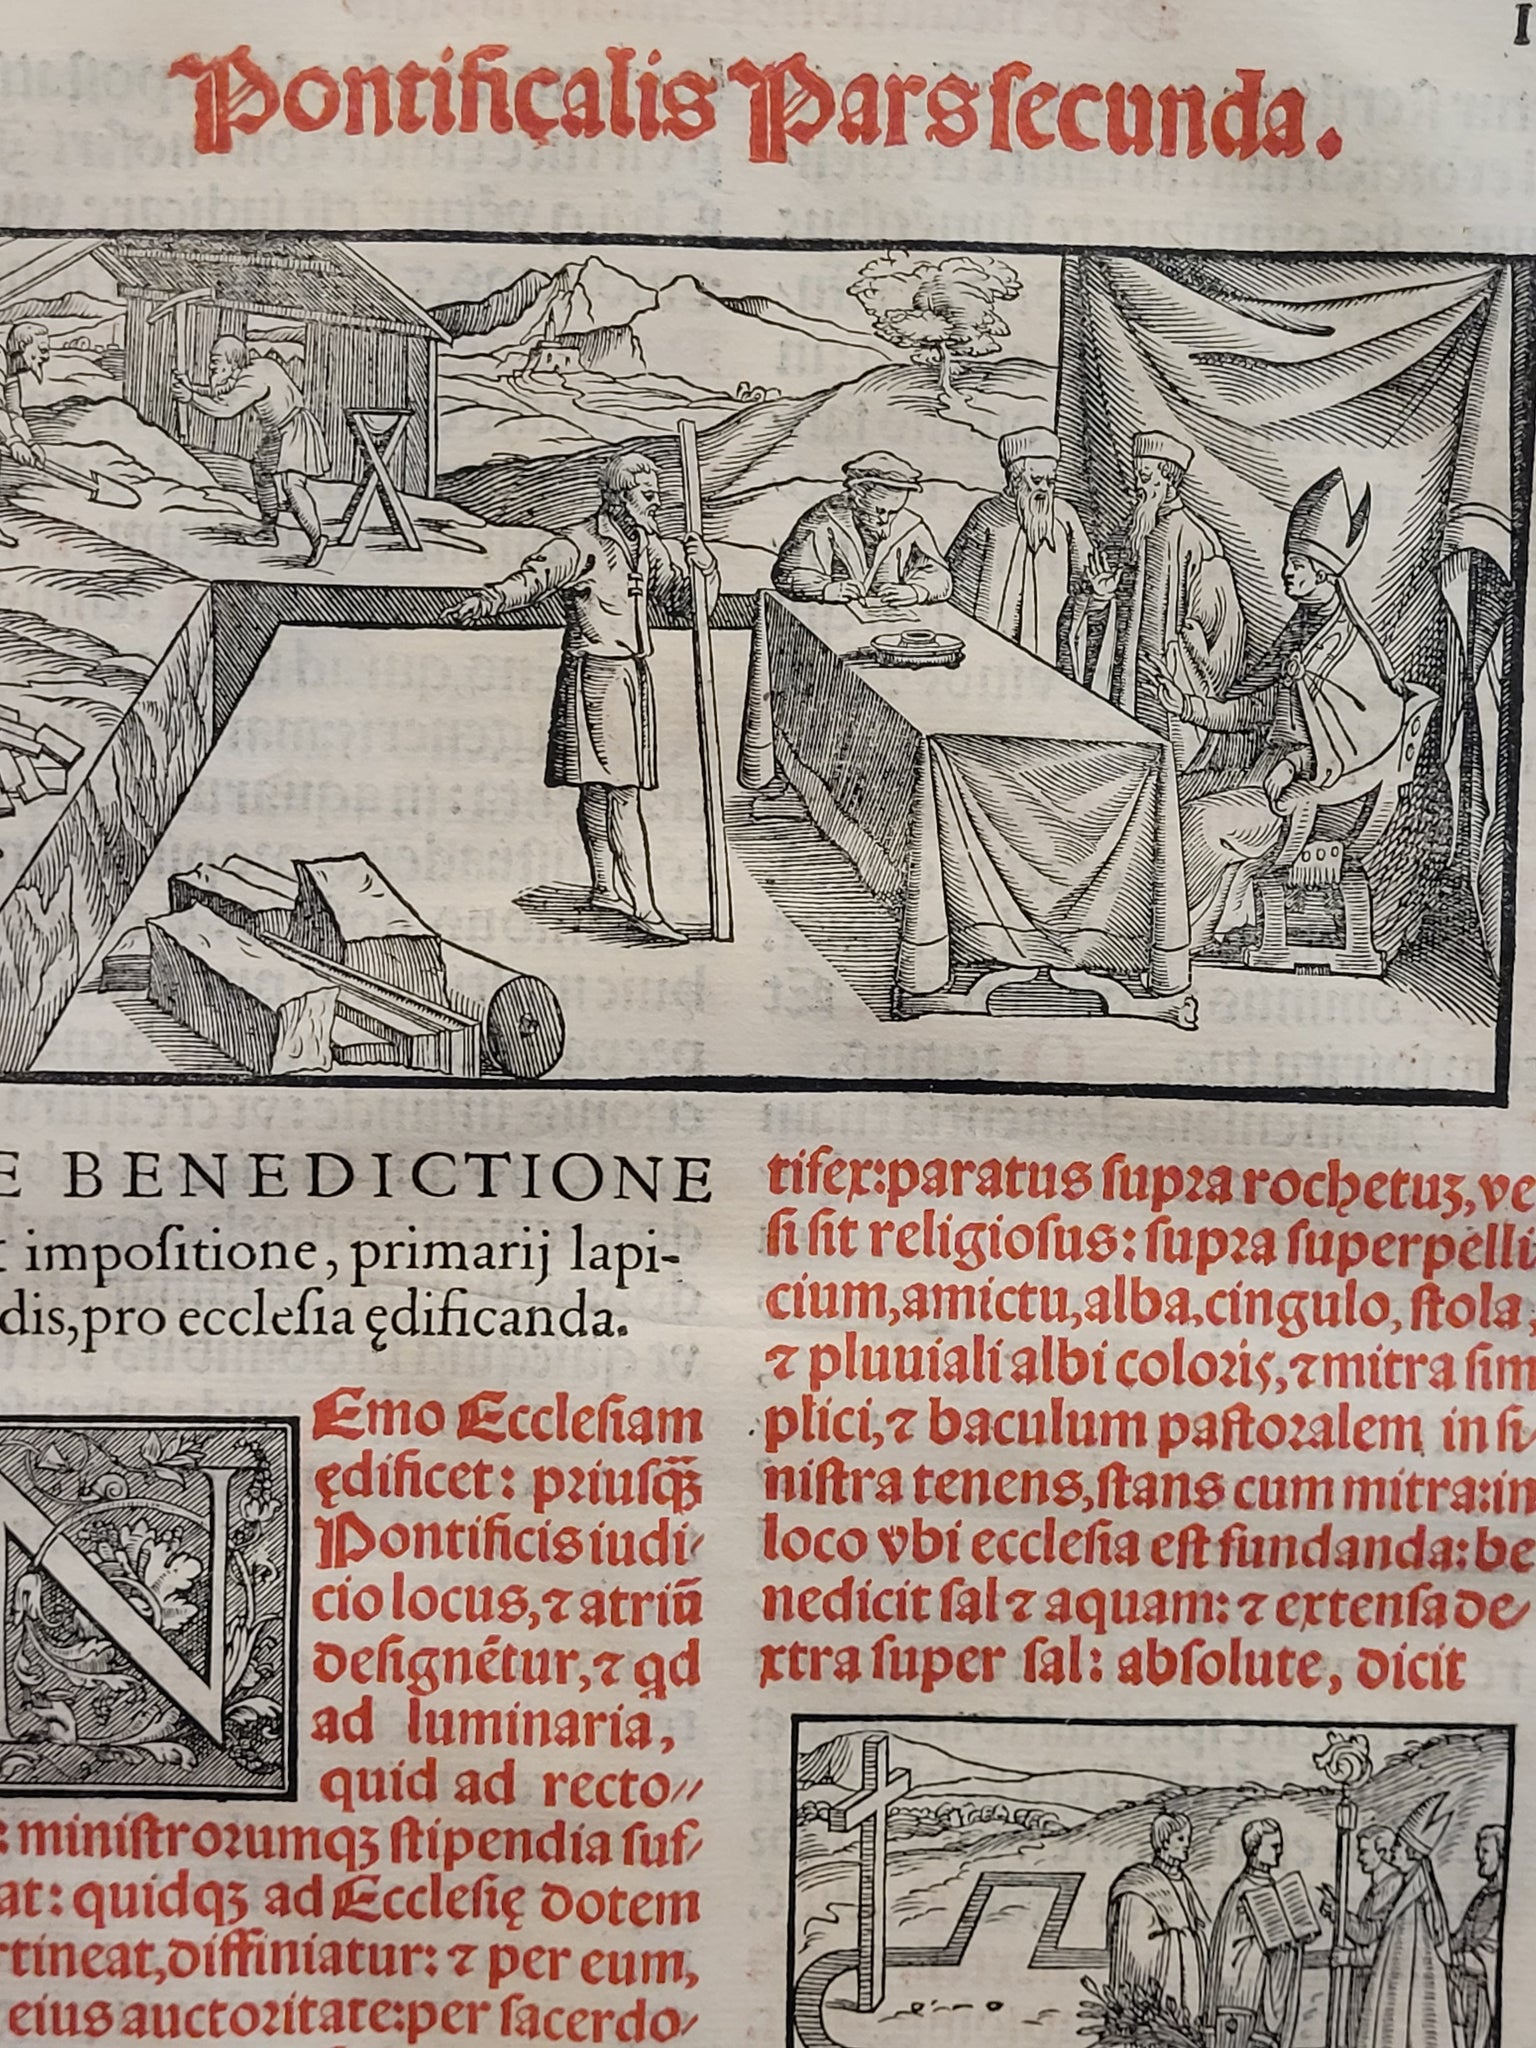 Pontificalis Pars ſecunda.
E BENEDICTIONE
t impoſitione, primarij lapi-
dis, pro eccleſia ędificanda.
NEmo Eccleſiam
ędificet: priuſqꝫ̃
Pontificis iudi
cio locus, ⁊ atriũ
deſignẽtur, ⁊ qd
ad luminaria,
quid ad recto
: miniſtrorumqꝫ ſtipendia ſuf
at: quidqꝫ ad Eccleſię dotem
rtineat, diffiniatur: ⁊ per eum,
eius auctoritate: per ſacerdo
tifex: paratus ſupra rochetuꝫ, ve
ſi ſit religioſus: ſupra ſuperpelli
cium, amictu, alba, cingulo, ſtola,
⁊ pluuiali albi coloris, ⁊ mitra ſim
plici, ⁊ baculum paſtoralem in ſi
niſtra tenens, ſtans cum mitra: in
loco vbi eccleſia eſt fundanda: be
nedicit ſal ⁊ aquam: ⁊ extenſa de
xtra ſuper ſal: abſolute, dicit